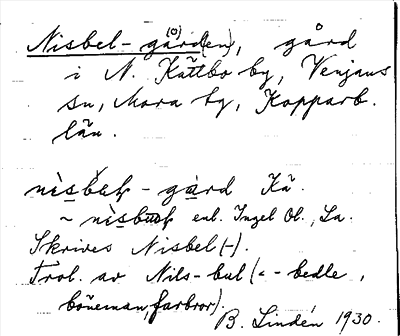 Nisbel-gård(en), gård
i N. Kättbo by, Venjans
sn, Mora tg, Kopparb.
län.
-gård Kä.
~ enl. Ingel Ol., La.
Skrives Nisbel(-).
Trol. av Nils-bul (- -bedle,
böneman, farbror).
B. Lindén 1930.